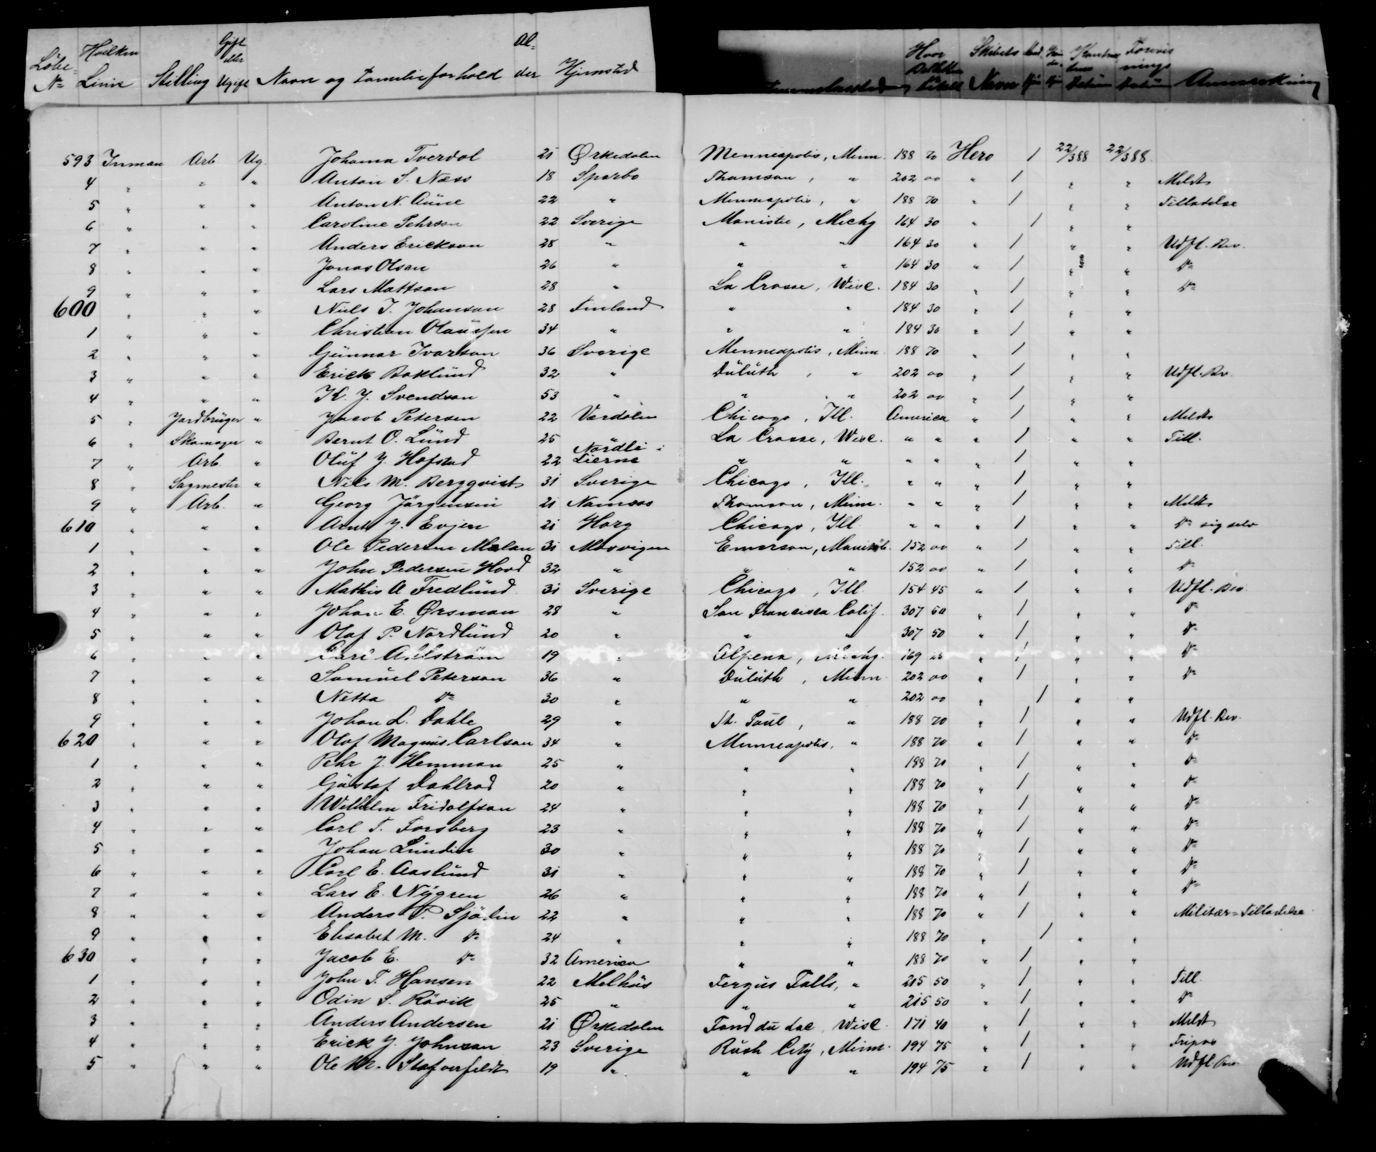 Løbe No Hvilken Linie Stilling Gift eller Ugift Navn og Familieforhold Alder Hjemsted Hvor Billetten Skibets Navn Anmærkning
593 Inman Arb Ug Johanna Tverdal 21 Ørkedalen Menneapolis, Minn. 188 70 Hero 1 22/3 88 22/3 88
4 " " " Anton S. Næss 18 Sparbo Thomson, " 202 00 " 1 " " Meldt
5 " " " Anton N. Aune 22 " Minneapolis, " 188 70 " 1 " " Tilladelse
6 " " " Caroline Pehrson 22 Sverige Manistee, Michg 164 30 " 1 " "
7 " " " Anders Erickson 28 " " " 164 30 " 1 " " Udfl. Bev.
8 " " " Jonas Olsen 26 " " " 164 30 " 1 " " do
9 " " " Lars Mattson 28 " La Crosse, Wisc. 184 30 " 1 " " do
600 " " " Niels I. Johanson 28 Finland " " 184 30 " 1 " "
1 " " " Christian Olaussen 34 " " " 184 30 " 1 " "
2 " " " Gunnar Ivarson 36 Sverige Menneapolis, Minn 188 70 " 1 " "
3 " " " Erick Boklund 32 " Duluth, " 202 00 " 1 " " Udfl. Bev
4 " " " K. J. Svendson 53 " " " 202 00 " 1 " "
5 " Jordbruger " Jacob Petersen 22 Værdalen Chicago, Ill. America " 1 " " Meldt
6 " Skomager " Bernt O. Lund 25 La Crosse, Wisc. " " " 1 " " Till.
7 " Arb " Oluf J. Hofstad 22 Nordli i Lierne " " " " " 1 " "
8 " Sagmester " Niels M. Bergqvist 31 Sverige Chicago, Ill. " " " 1 " "
9 " Arb. " Georg Jørgensen 21 Namsos Thomson, Minn. " " " 1 " " Meldt
610 " " " Arnt J. Evjen 21 Horg Chicago, Ill " " " 1 " " do sig selv
1 " " " Ole Pedersen Melan 31 Mosvigen Emerson, Manitob. 152 00 " 1 " " Till.
2 " " " John Pedersen Hovd 32 " " " 152 00 " 1 " " do
3 " " " Mathis A Fredlund 31 Sverige Chicago, Ill 154 45 " 1 " " Udfl. Bev.
4 " " " Johan E. Ørsman 28 " San Francisco Calif. 307 50 " 1 " " do
5 " " " Olof P. Nordlund 20 " " " 307 50 " 1 " " do
6 " " " Carl Ahlström 19 " Alpena, Michg. 169 " 1 " " do
7 " " " Samuel Peterson 36 " Duluth, Minn 202 00 " 1 " " do
8 " " " Netta do 30 " " " 202 00 " 1 " "
9 " " " Johan L. Dahle 29 " St. Paul, " 188 70 " 1 " " Udfl. Bev.
620 " " " Olof Magnus Carlson 34 " Menneapolis, " 188 70 " 1 " " do
1 " " " Pehr J. Hemman 25 " " " 188 70 " 1 " " do
2 " " " Gustaf Dahlrod 20 " " " 188 70 " 1 " " do
3 " " " Wilhelm Fridolfson 24 " " " 188 70 " 1 " " do
4 " " " Carl T. Forsberg 23 " " " 188 70 " 1 " " do
5 " " " Johan Lundin 30 " " " 188 70 " 1 " " do
6 " " " Carl E. Aaslund 31 " " " 188 70 " 1 " " do
7 " " " Lars E. Nygren 26 " " " 188 70 " 1 " " do
8 " " " Anders P. Sjödin 22 " " " 188 70 " 1 " " Militær-Tilladelse
9 " " " Elisabet M. do 24 " " " 188 70 " 1 " "
630 " " " Jacob E. do 32 America " " 188 70 " 1 " "
1 " " " John T. Hansen 22 Melhus Fergus Falls, " 215 50 " 1 " " Till
2 " " " Odin S. Røvik 25 " " " 215 50 " 1 " " do
3 " " " Anders Andersen 21 Ørkedalen Fond du Lac, Wisc. 171 40 " 1 " " Meldt
4 " " " Erick J. Johnson 23 Sverige Rush City, Minn. 194 75 " 1 " " Fripas
5 " " " Ole M. Stafverfeldt 19 " " " 194 75 " 1 " " Udfl. Bev